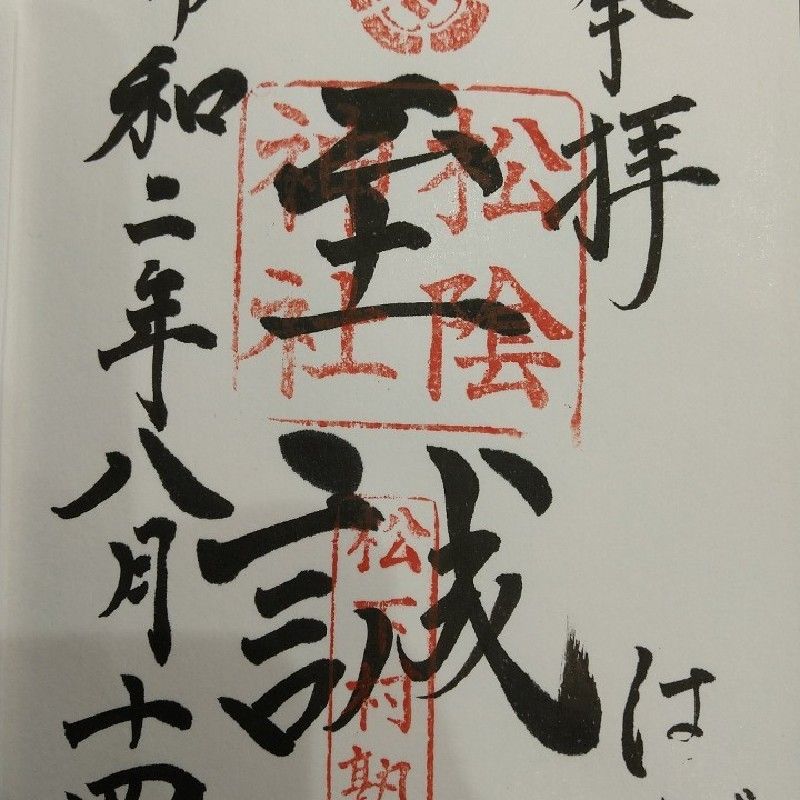 奉拝
至誠
は
令和二年八月十四
松陰
神社
松下村塾